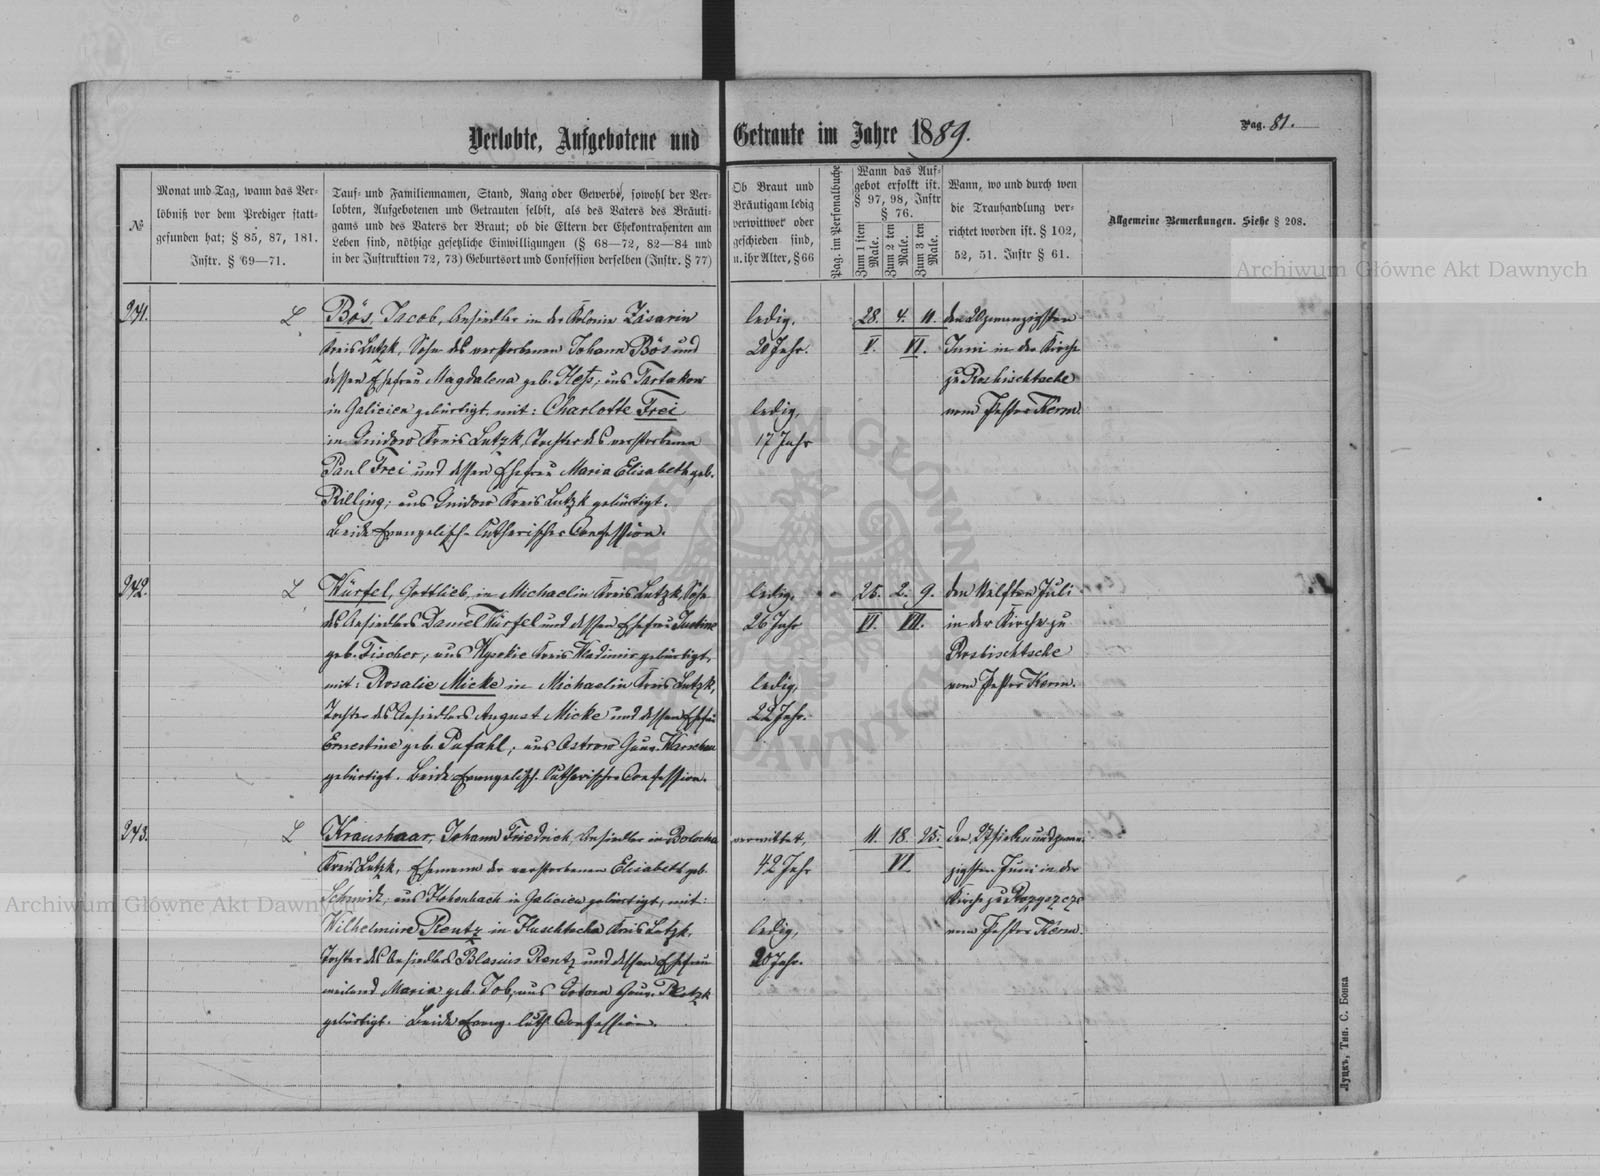 Verlobte, Aufgebotene und Getraute im Jahre 1889.
Pag. 81.
№
Monat und Tag, wann das Ver-
löbniß vor dem Prediger statt-
gefunden hat; § 85, 87, 181.
Instr. § 69—71.
Tauf- und Familiennamen, Stand, Rang oder Gewerbe, sowohl der Ver-
lobten, Aufgebotenen und Getrauten selbst, als des Vaters des Bräuti-
gams und des Vaters der Braut; ob die Eltern der Ehekontrahenten am
Leben sind, nöthige gesetzliche Einwilligungen (§ 68—72, 82—84 und
in der Instruktion 72, 73) Geburtsort und Confession derselben (Instr. § 77)
Ob Braut und
Bräutigam ledig
verwittwet oder
geschieden sind,
u. ihr Alter, § 66
Pag. im Personalbuche
Wann das Auf-
gebot erfolkt ist.
§ 97, 98, Instr
§ 76.
Zum 1 sten
Male.
Zum 2 ten
Male.
Zum 3 ten
Male.
Wann, wo und durch wen
die Trauhandlung ver-
richtet worden ist. § 102,
52, 51. Instr § 61.
Allgemeine Bemerkungen. Siehe § 208.
241.
L
Bös, Jacob, Ansiedler in der Kolonie Zäsarin
Kreis Lutzk, Sohn des verstorbenen Johann Bös und
dessen Ehefrau Magdalena geb. Heß; aus Tartakow
in Galicien gebürtigt, mit: Charlotte Frei
in Gnidow Kreis Lutzk, Tochter des verstorbenen
Paul Frei und dessen Ehefrau Maria Elisabeth geb.
Rilling; aus Gnidow Kreis Lutzk gebürtigt.
Beide Evangelisch-Lutherischer Confession.
ledig,
20 Jahr.
ledig,
17 Jahr
28. 4. 11.
V. VI.
den 20zwanzigsten
Juni in der Kirche
zu Roshischtsche
vom Pastor Kerm.
242.
L
Würfel, Gottlieb, in Michaelin Kreis Lutzk, Sohn
des Ansiedlers Daniel Würfel und dessen Ehefrau Justine
geb. Fischer, aus Wysokie Kreis Wladimir gebürtigt,
mit: Rosalie Micke in Michaelin Kreis Lutzk,
Tochter des Ansiedlers August Micke und dessen Ehefrau
Ernestine geb. Pufahl; aus Ostrow Gouv. Warschau
gebürtigt. Beide Evangelisch-Lutherischer Confession.
ledig,
26 Jahr
ledig,
22 Jahr.
25. 2. 9.
VI. VII.
den Juli
in der Kirche zu
Roshischtsche
vom Pastor Kerm.
243.
L
Kraushaar, Johann Friedrich, Ansiedler in
Kreis Lutzk, Ehemann der verstorbenen Elisabeth geb.
Schmidt, aus Hohenbach in Galicien gebürtigt, mit:
Wilhelmine Rentz in Kreis Lutzk,
Tochter des Ansiedlers Blasius Rentz und dessen Ehefrau
weiland Maria geb. Job, aus Gouv. Plotzk
gebürtigt. Beide Evang. luth. Confession.
verwittwet,
42 Jahr
ledig,
20 Jahr.
11. 18. 25.
VI.
den 27sieben und zwan-
zigsten Juni in der
Kirche zu
vom Pastor Kerm.
Луцкъ, Тип. С. Бонка
Archiwum Główne Akt Dawnych
Archiwum Główne Akt Dawnych
ARCHIWUM GŁÓWNE
AKT DAWNYCH